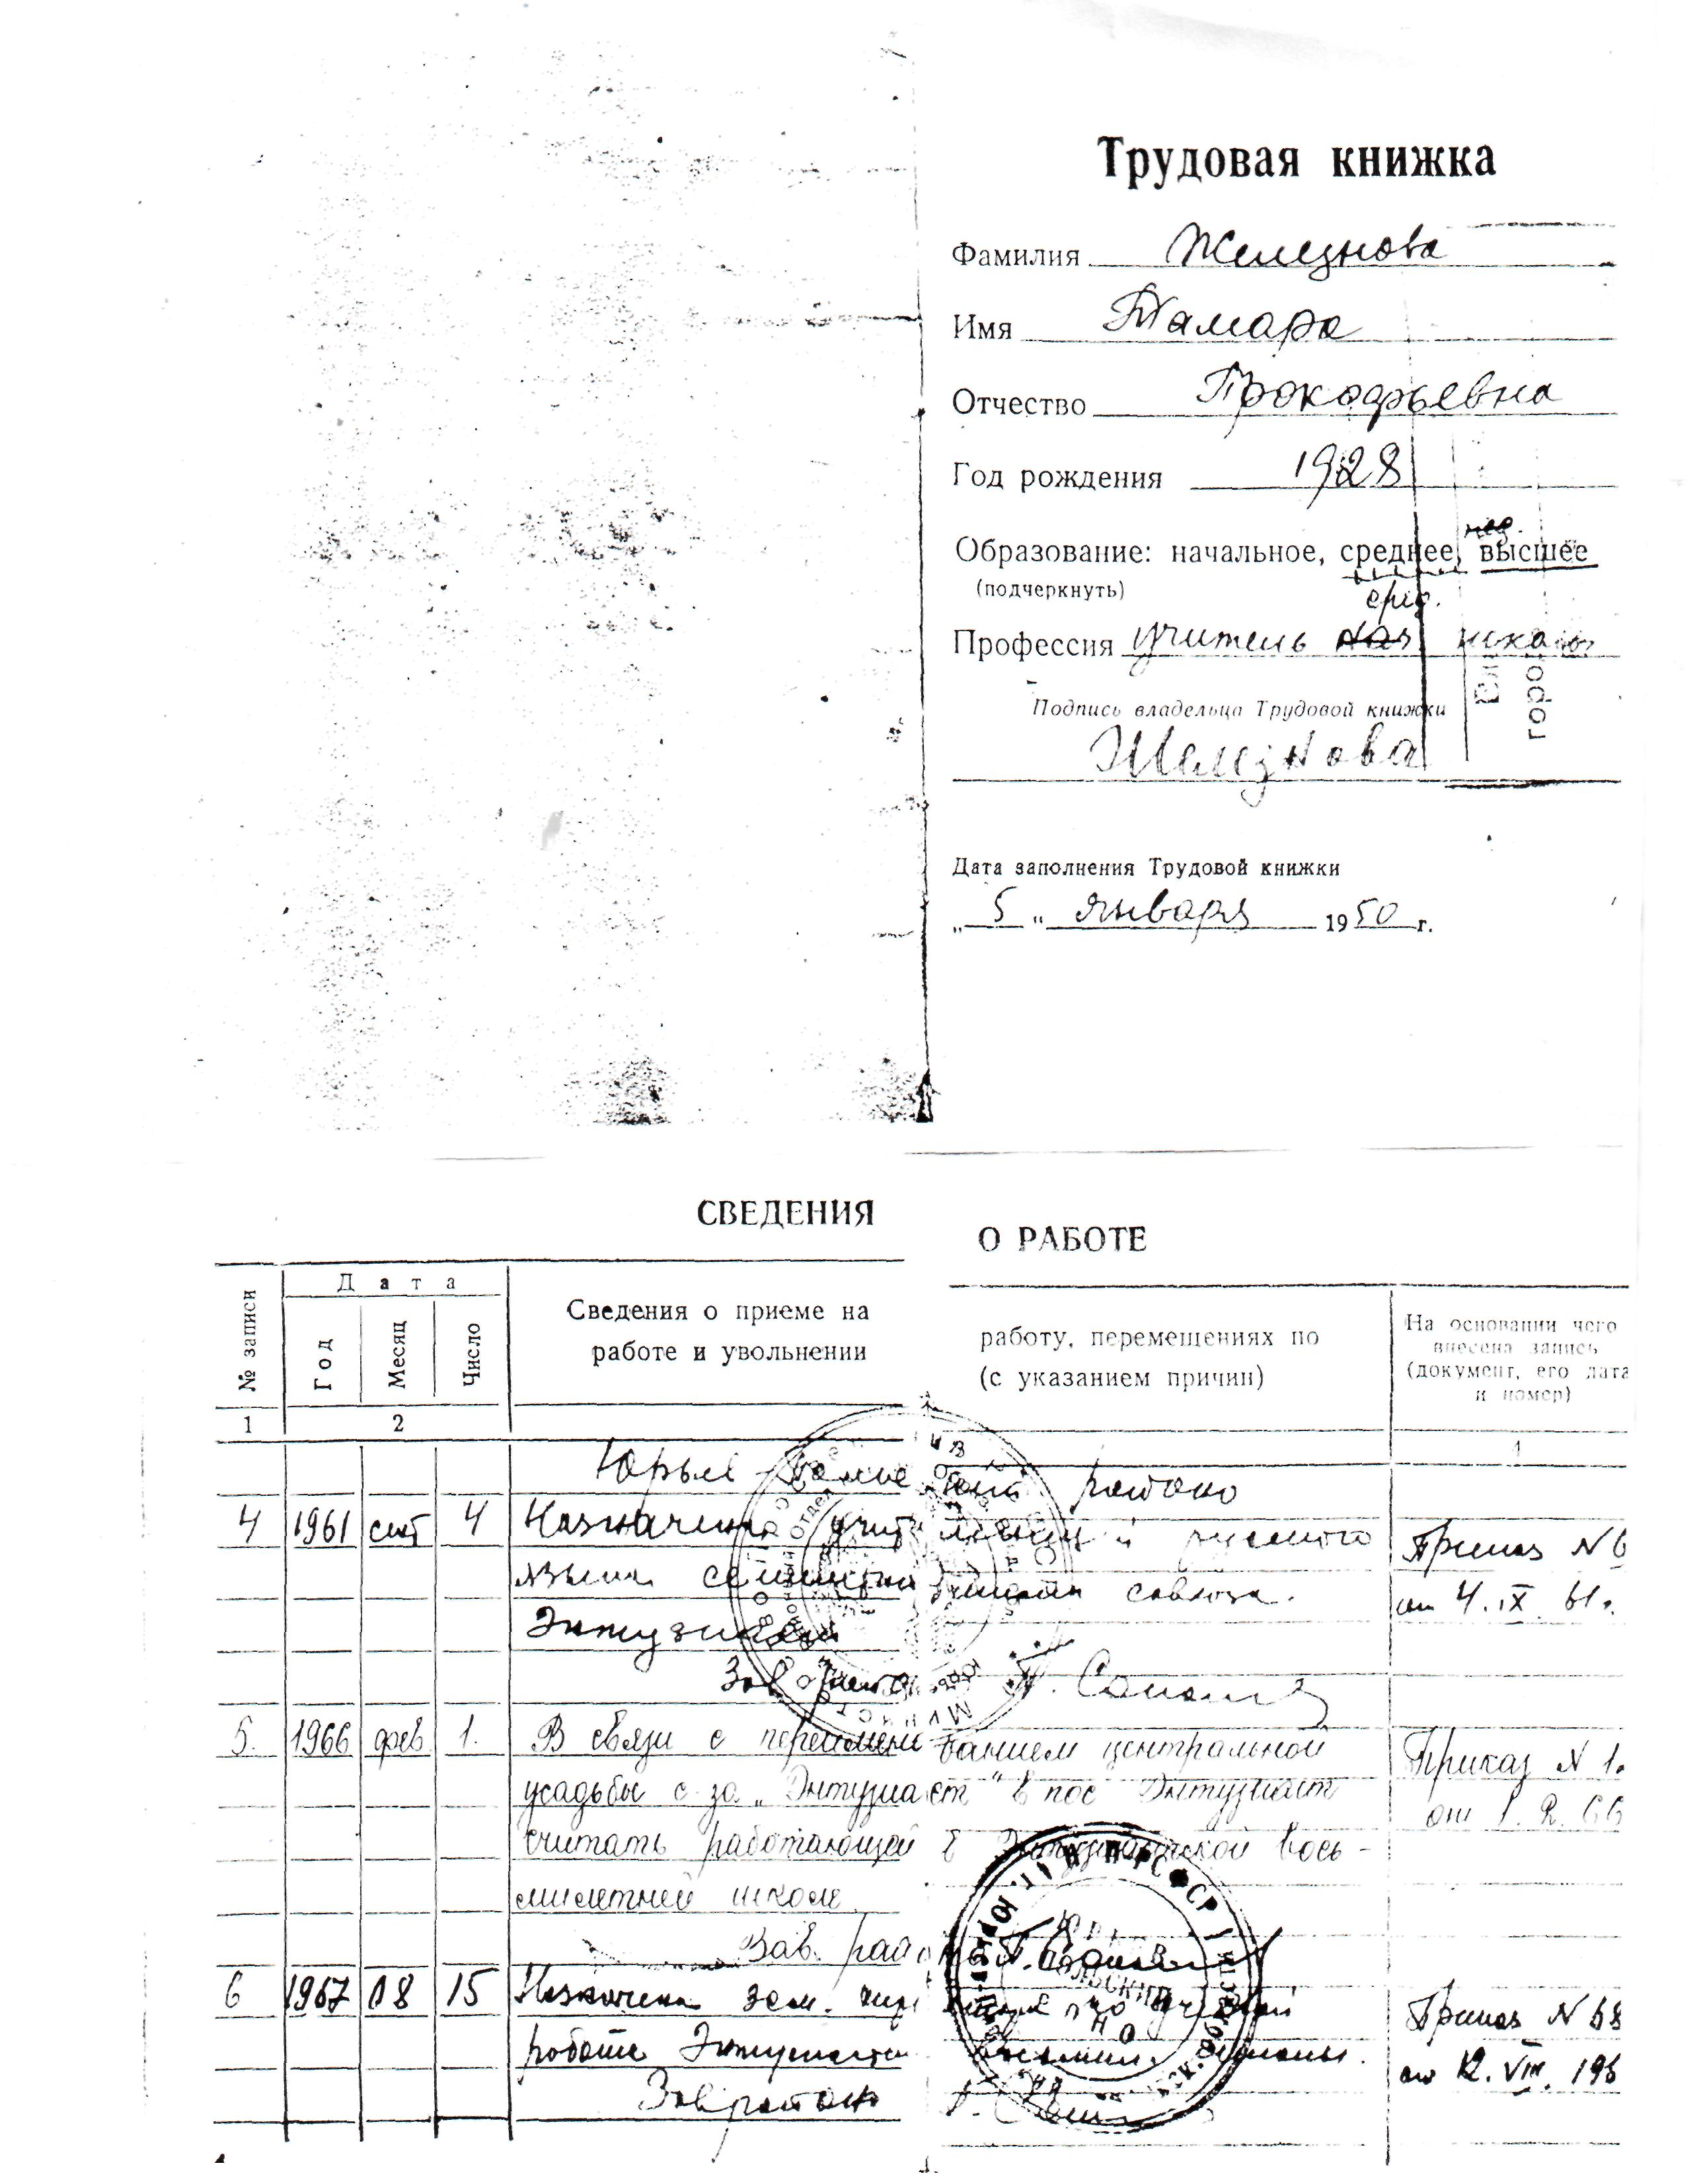 Трудовая книжка
Фамилия Железнова
Имя Тамара
Отчество Прокофьевна
Год рождения 1928
нез.
Образование: начальное, среднее, высшее
(подчеркнуть)
сред.
Профессия учитель школы
Подпись владельца Трудовой книжки
Железнова
Дата заполнения Трудовой книжки
„ 5 " января 1950 г.
СВЕДЕНИЯ О РАБОТЕ
№ записи
Дата
Год
Месяц
Число
Сведения о приеме на работу, перемещениях по
работе и увольнении (с указанием причин)
На основании чего
внесена запись
(документ, его дата
и номер)
1 2 4
Юрьев-Польский районо
4 1961 сент 4 Назначена учительницей русского Приказ № 6
языка семилетней школы совхоза. от 4.IX.61г.
Энтузиаст
Зав районо
5. 1966 фев 1. В связи с переименованием центральной Приказ № 1.
усадьбы с-за „Энтузиаст" в пос Энтузиаст от 1.2.66
считать работающей в Энтузиастской вось-
милетней школе
Зав. районо
6 1967 08 15 Назначена зам. директора по учебной Приказ № 68
работе восьмил. школы. от 12.VIII.196
Зав районо